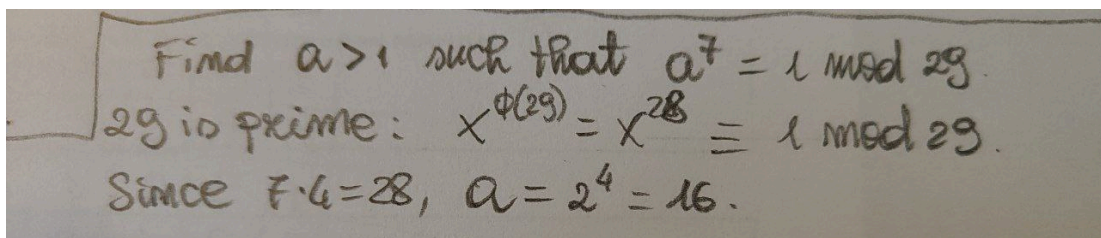 Find a > 1 such that a⁷ = 1 mod 29.
29 is prime: x^ϕ(29) = x²⁸ ≡ 1 mod 29.
Since 7·4=28, a = 2⁴ = 16.